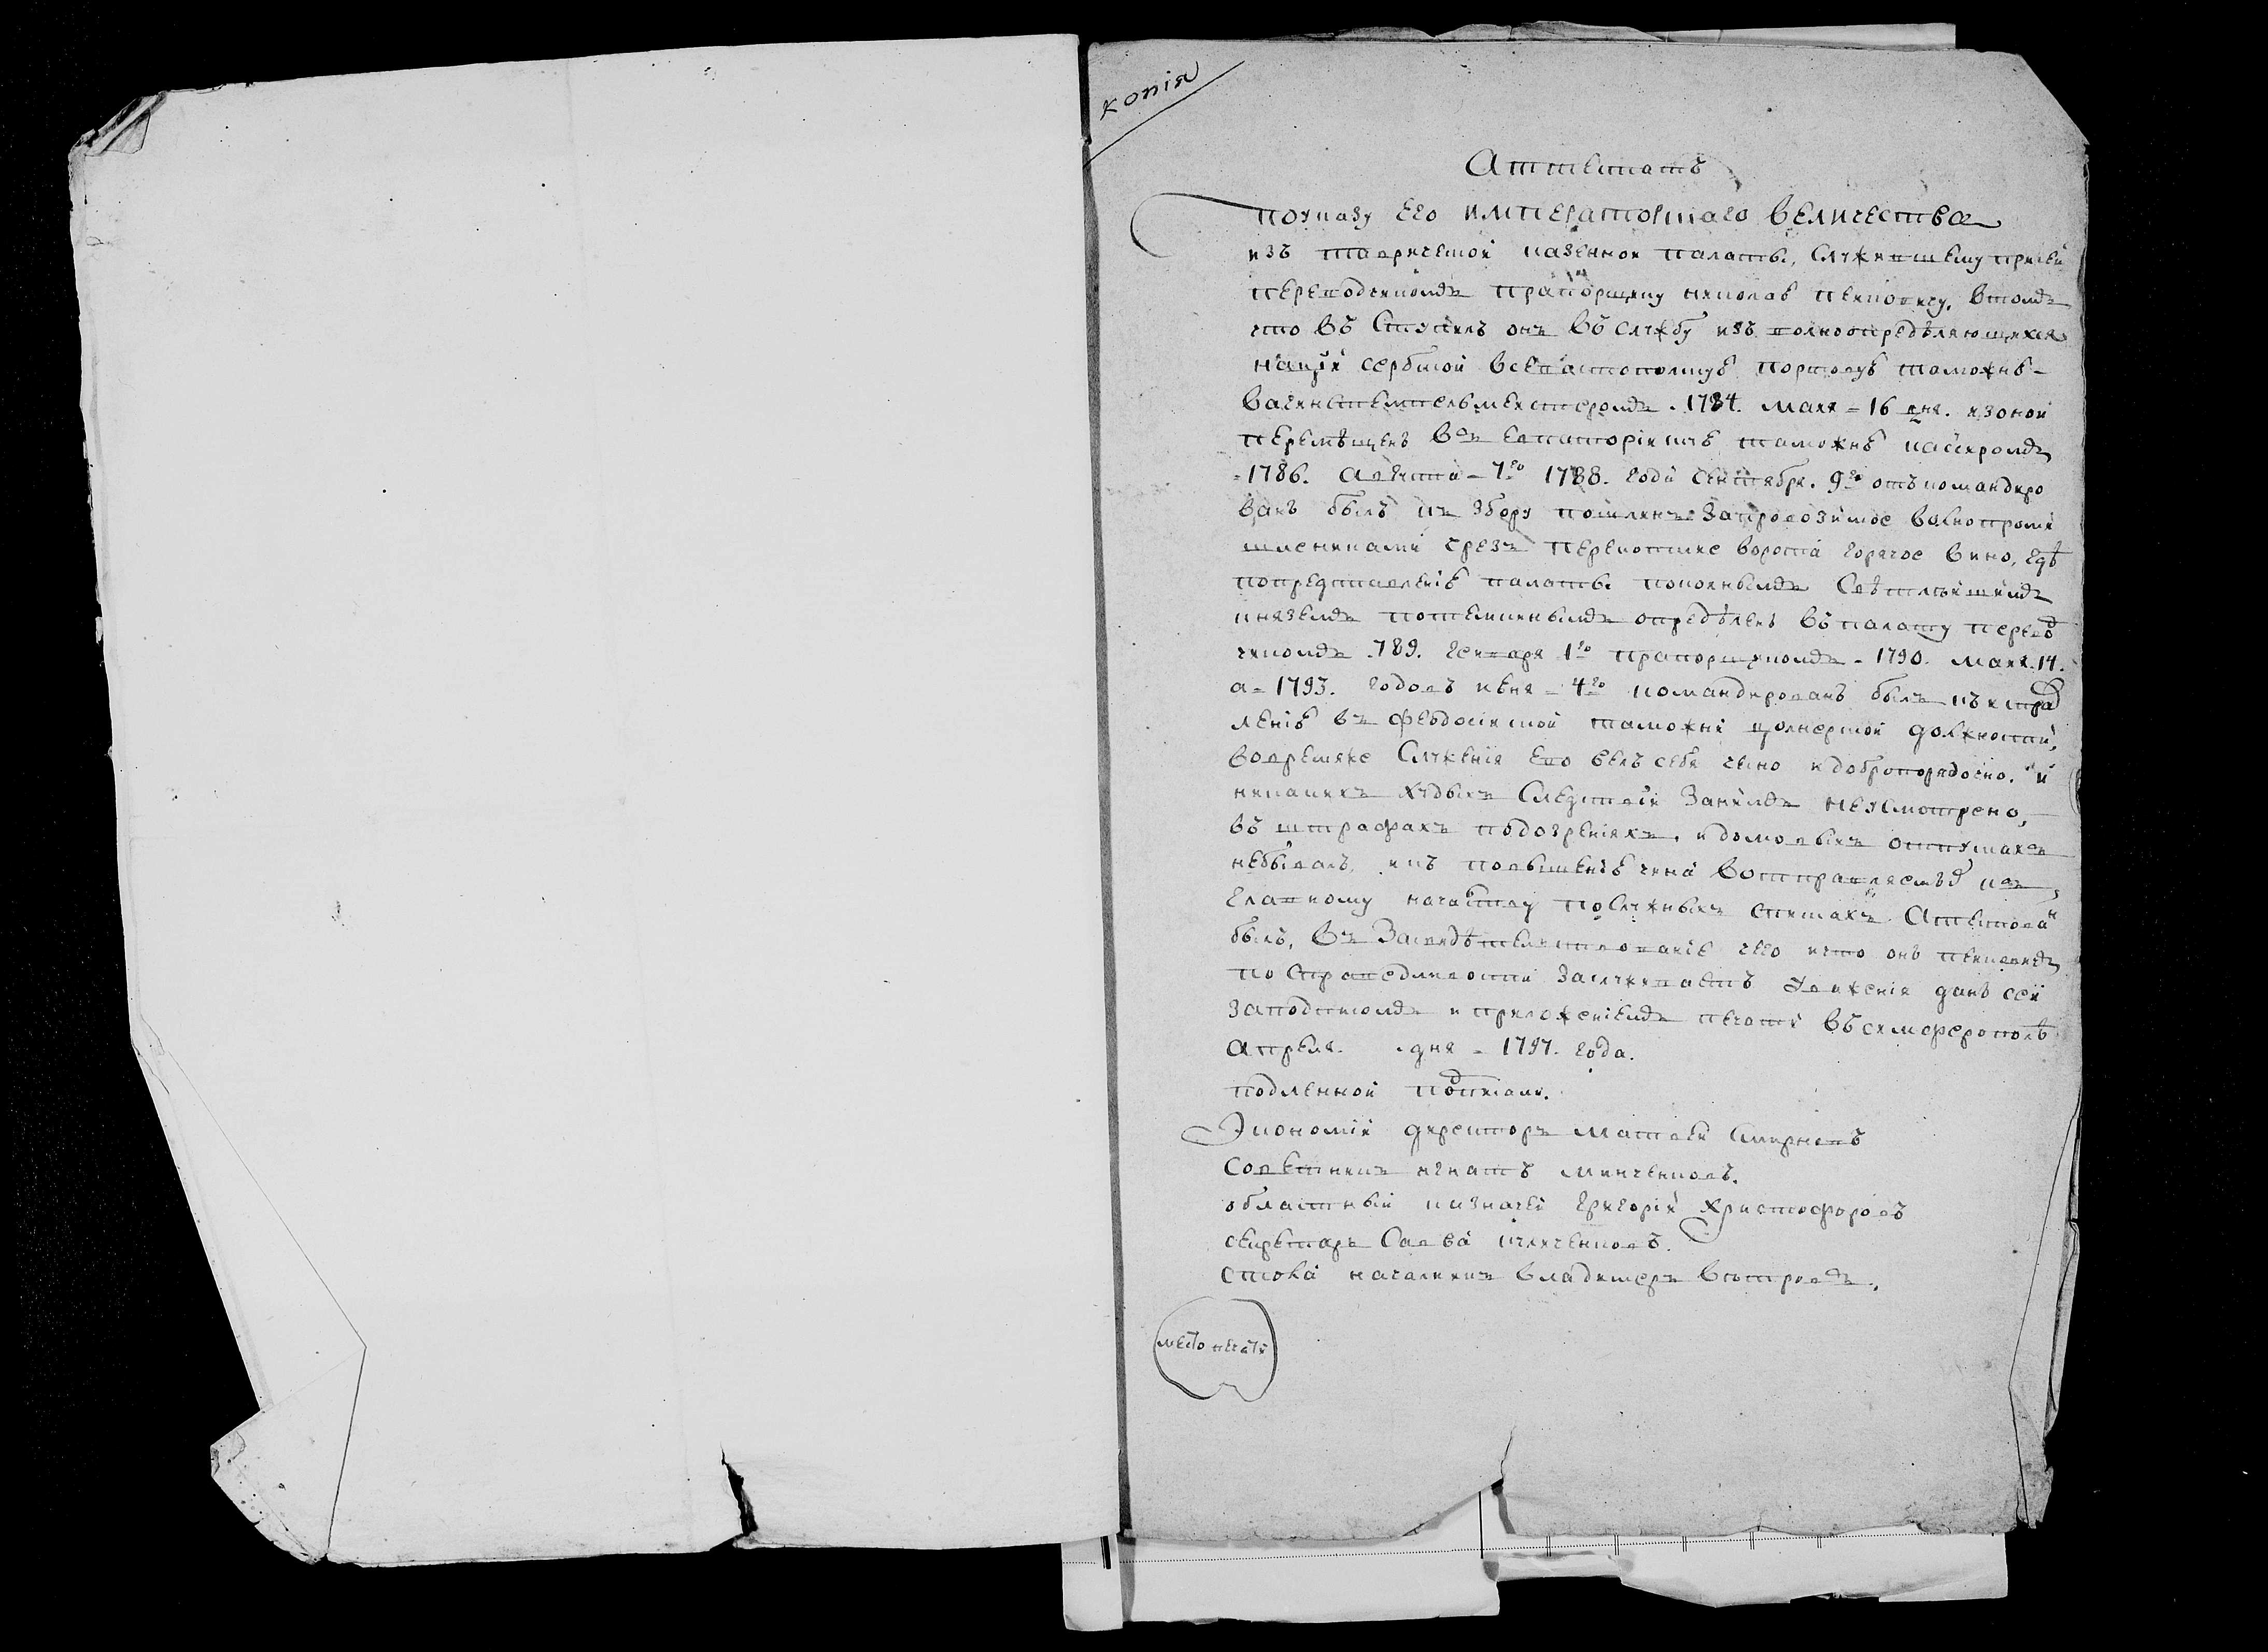 копія
Аттестатъ
поуказу Его императорскаго величества
изъ таврической казенной палаты, служившему приней
переводчикомъ прапорщику николаю пекповичу, втомъ
что въ ступилъ онъ въ службу изъ волноопредѣляющихся
націи сербской всевастополскую портовую таможню
вагенстемпельмейстеромъ 1784. мая = 16 дня. изоной
перемѣщенъ въ евпаторійскую таможню касиромъ
1786. августа = 7го 1788. года сентября. 9го откомандиро
ванъ былъ къ збору пошлинъ запровозимое волнопроми
шлениками чрезъ перекопские ворота горячое вино, гдѣ
попредставленію палаты покойнымъ светлѣйшимъ
княземъ потемкинымъ опредѣленъ въ палату перевод
чикомъ 789. генваря 1го прапорщикомъ = 1790. мая. 14.
а = 1793. годовъ июня = 4го командированъ былъ къ исправ
лению въ феодосийской таможни цолнерской должности,
вовремяже служения его велъ себя чесно и добропорядочно. и
никакихъ худыхъ следствій занимъ неусмотрено,
въ штрафахъ подозренияхъ. и домовыхъ отпускахъ
небывалъ, икъ повышению чина вотправляемыхъ къ
главному началству послужныхъ спискахъ Атестован
былъ, въ засвидѣтелствование чего ичто онъ
по справедливости заслуживаетъ уважения данъ сей
заподписомъ и приложениемъ печати въ симферополѣ
Апреля. дня = 1797. года.
подленной подписали.
Экономіи директоръ матвей Смирновъ
советникъ игнатъ минченковъ.
областный казначей григорій христофоровъ
секретаръ савва
стола началникъ владимеръ
место печати